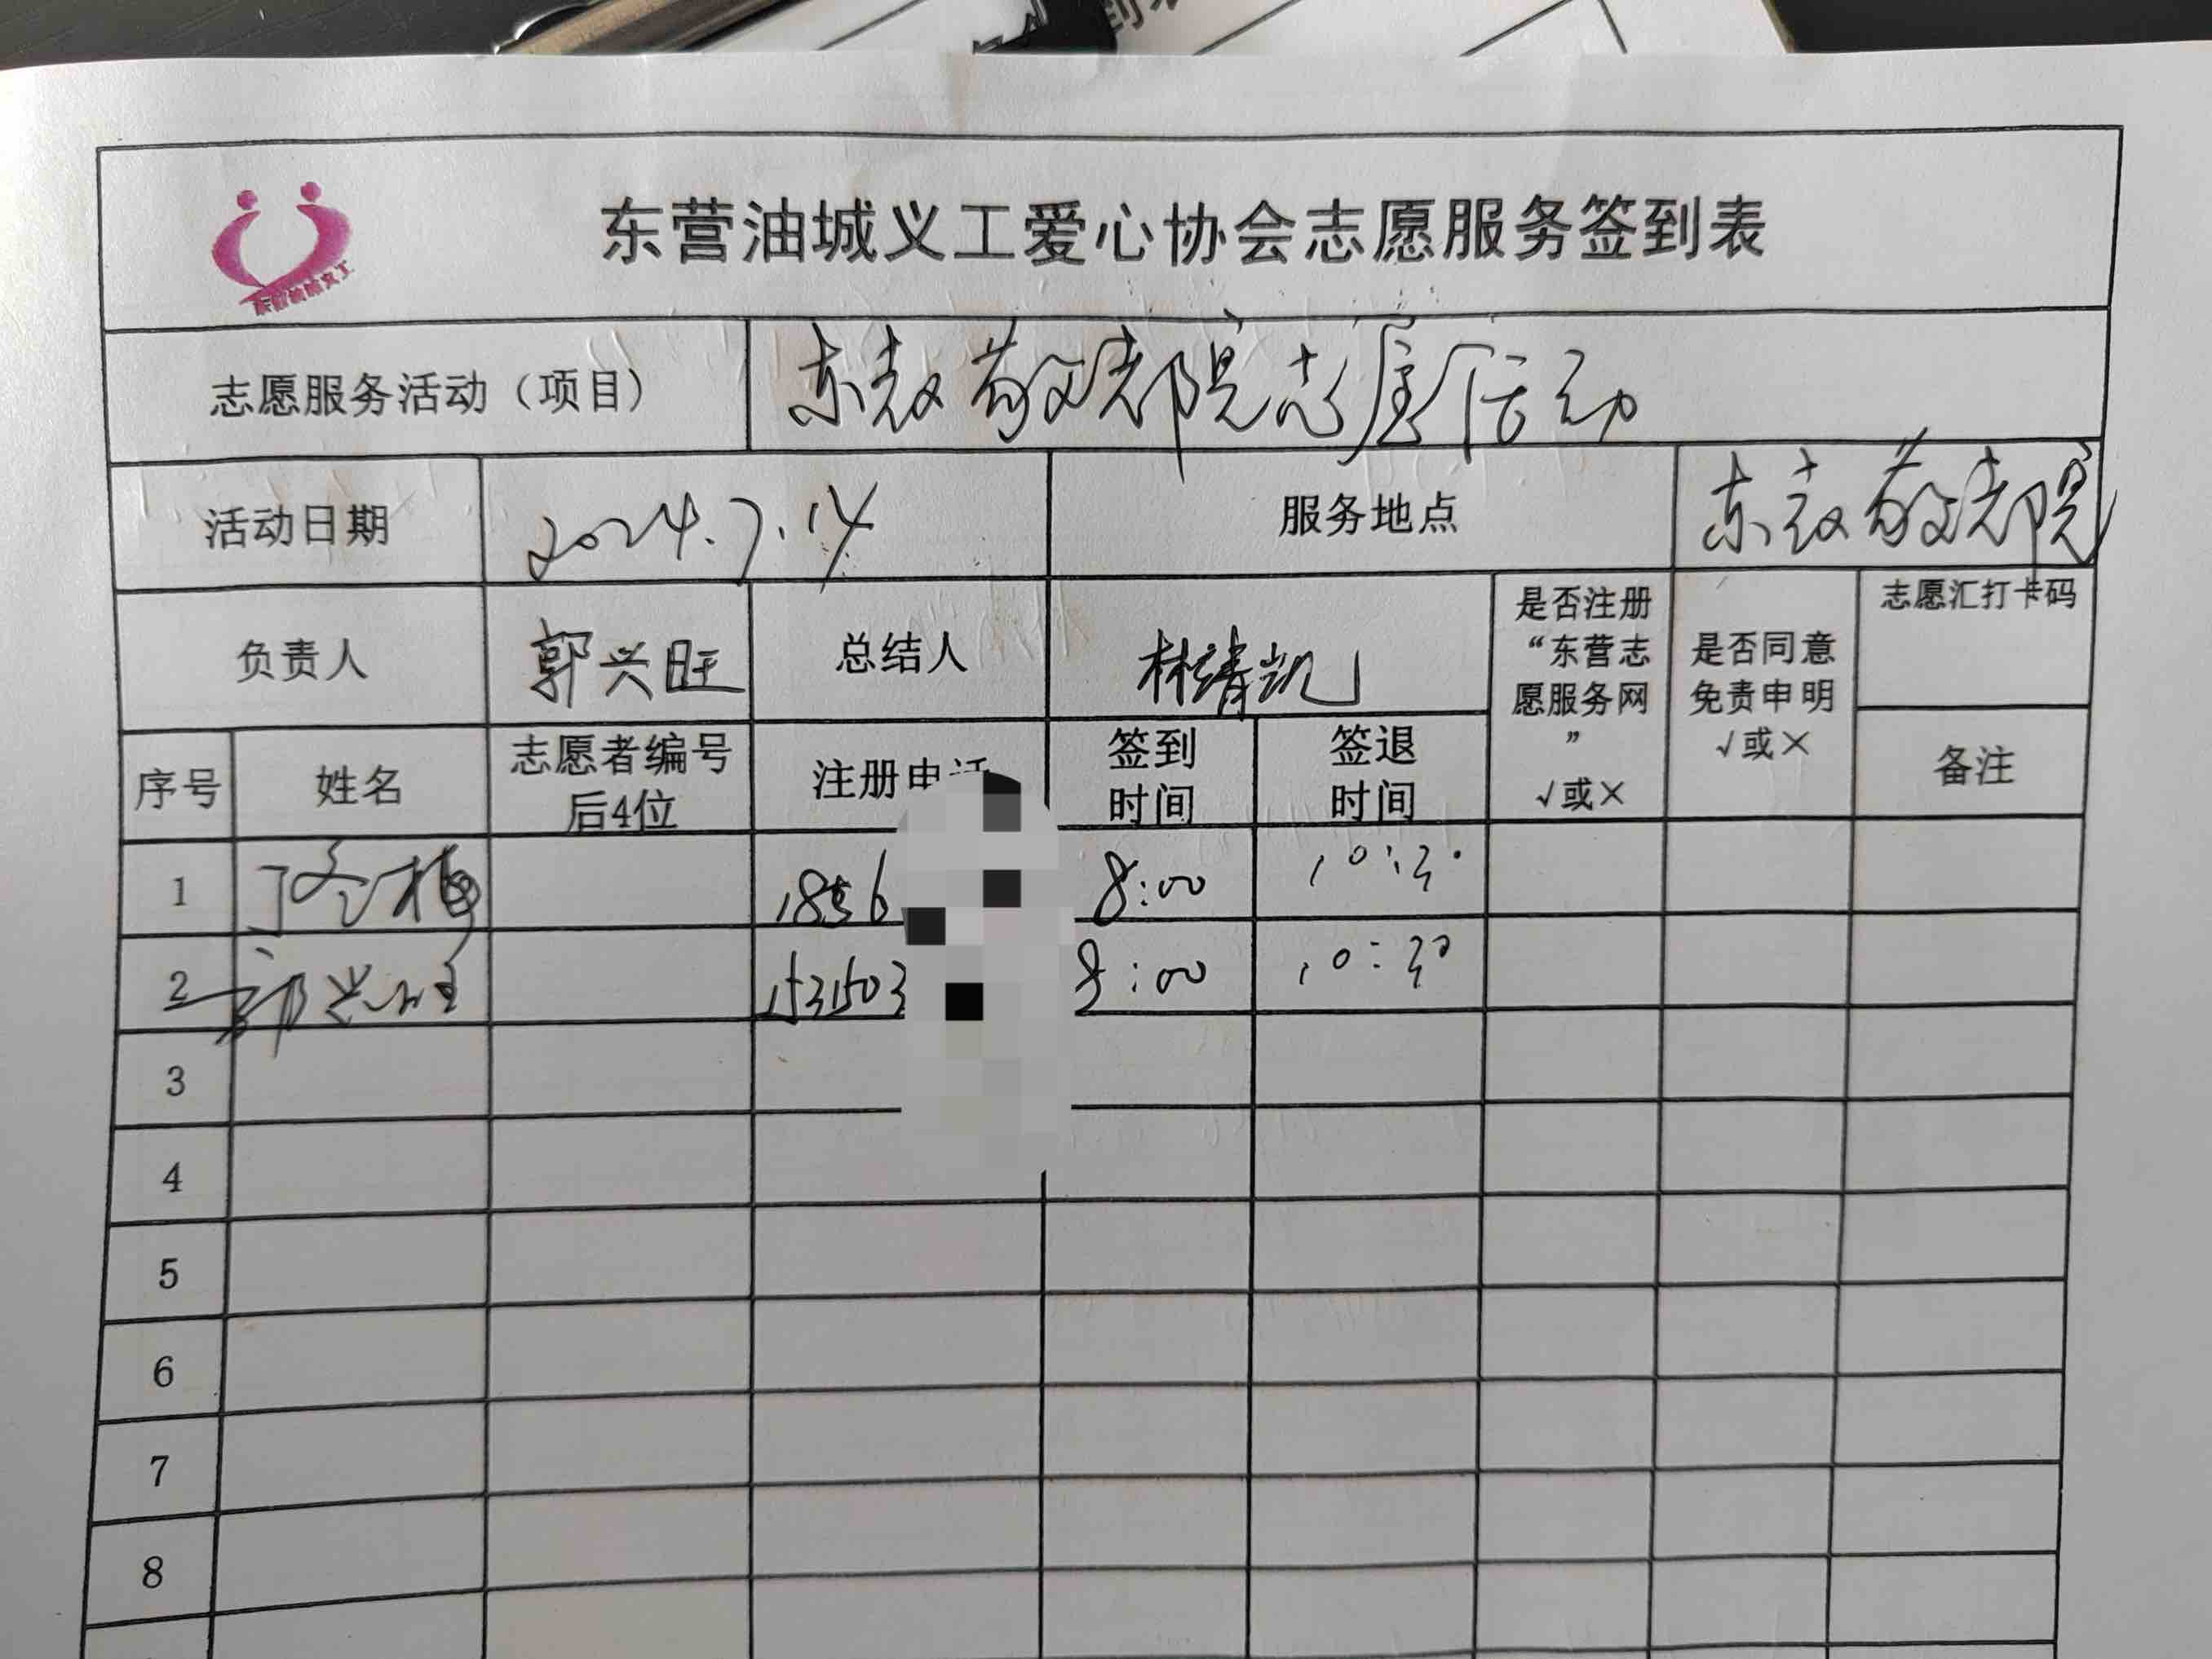 东营油城义工爱心协会志愿服务签到表
志愿服务活动（项目） 敬老院志愿活动
活动日期 2024.7.14 服务地点 敬老院
负责人 郭兴旺 总结人 林靖凯 是否注册“东营志愿服务网” √或× 是否同意免责申明 √或× 志愿汇打卡码
序号 姓名 志愿者编号后4位 注册电话 签到时间 签退时间 备注
1 1856 8:00 10:30
2 郭兴旺 1531503 8:00 10:30
3
4
5
6
7
8